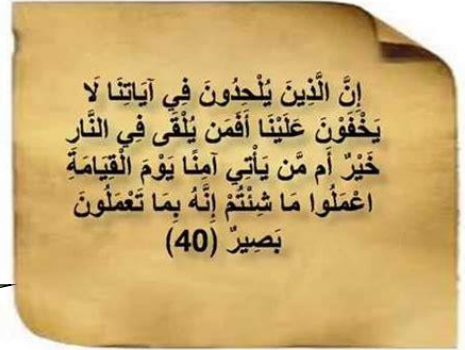 إِنَّ الَّذِينَ يُلْحِدُونَ فِي آيَاتِنَا لَا
يَخْفَوْنَ عَلَيْنَا أَفَمَن يُلْقَى فِي النَّارِ
خَيْرٌ أَم مَّن يَأْتِي آمِنًا يَوْمَ الْقِيَامَةِ
اعْمَلُوا مَا شِئْتُمْ إِنَّهُ بِمَا تَعْمَلُونَ
بَصِيرٌ (40)